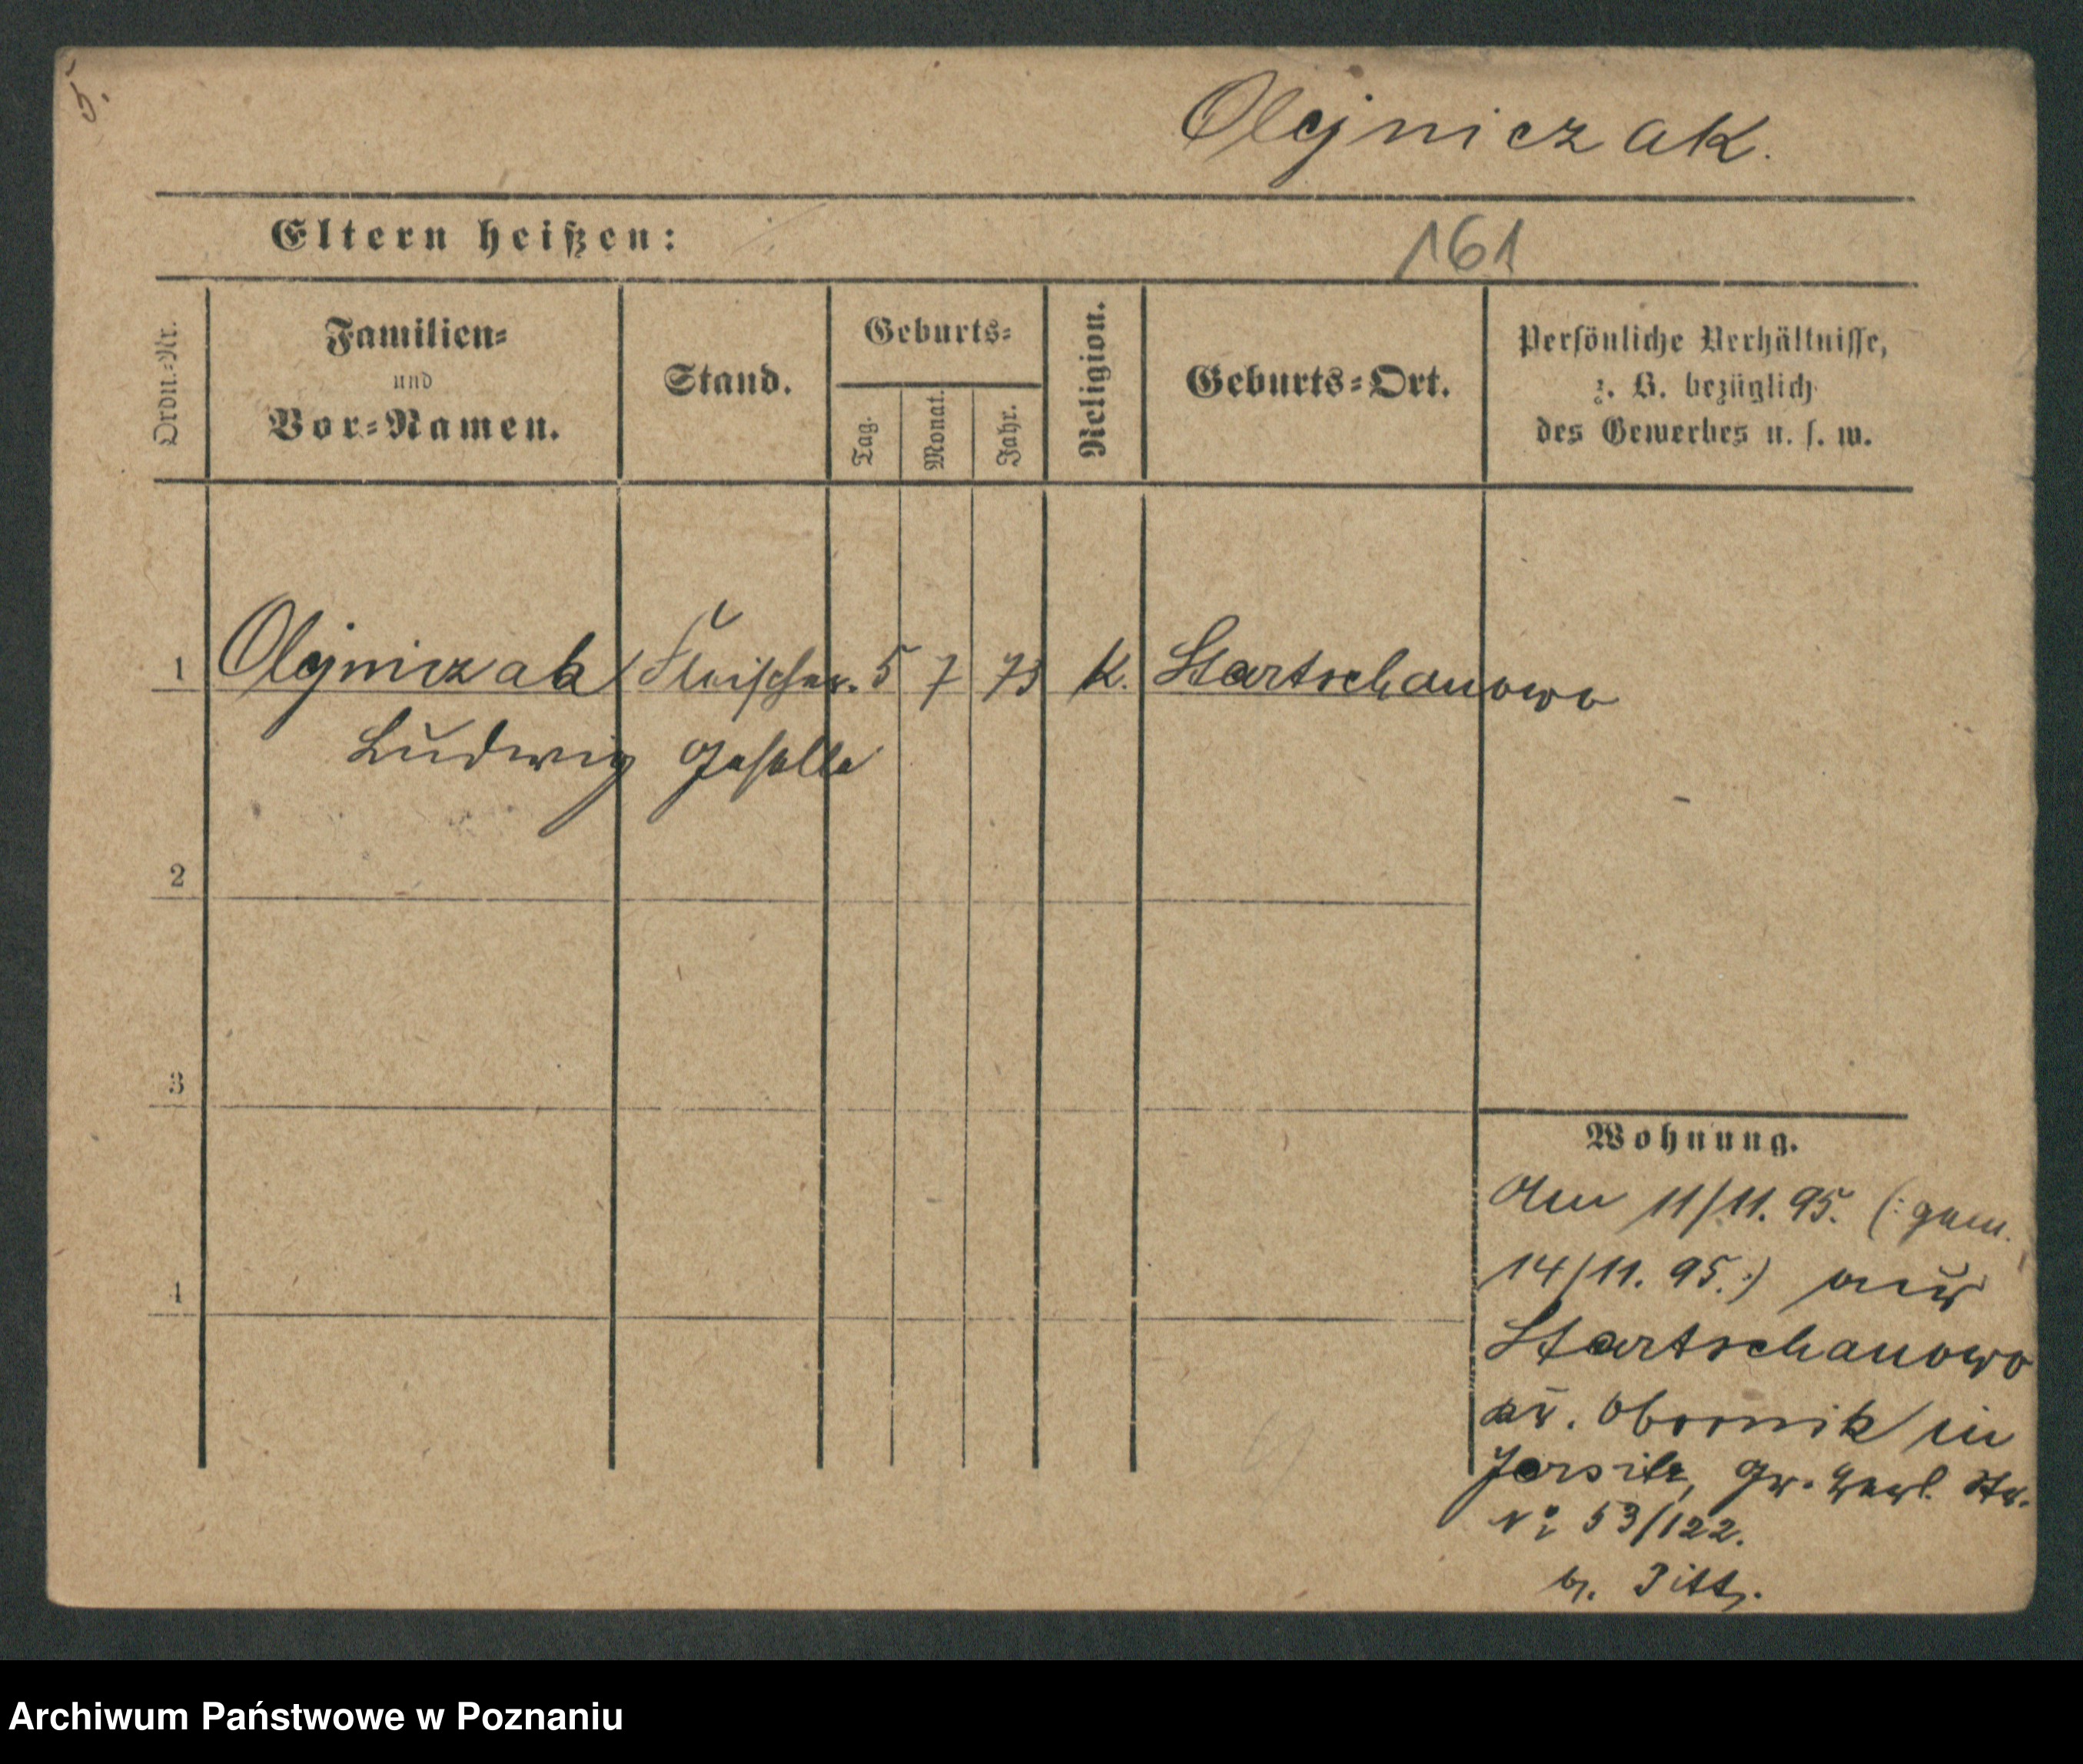 5.
Olejniczak.
Eltern heißen:
161
Ordn.-Nr.
Familien-
und
Vor-Namen.
Stand.
Geburts-
Tag.
Monat.
Jahr.
Religion.
Geburts-Ort.
Persönliche Verhältnisse,
z. B. bezüglich
des Gewerbes u. s. w.
1 Olejniczak Fleischer. 5 7 73 K. Startschanowo
Ludwig Geselle
2
3
4
Wohnung.
Am 11/11. 95. (: gem.
14/11. 95. :) aus
Startschanowo
Kr. Obornik in
Jersitz, Gr. Berl. Str.
No 53/122.
b. Pitt.
Archiwum Państwowe w Poznaniu